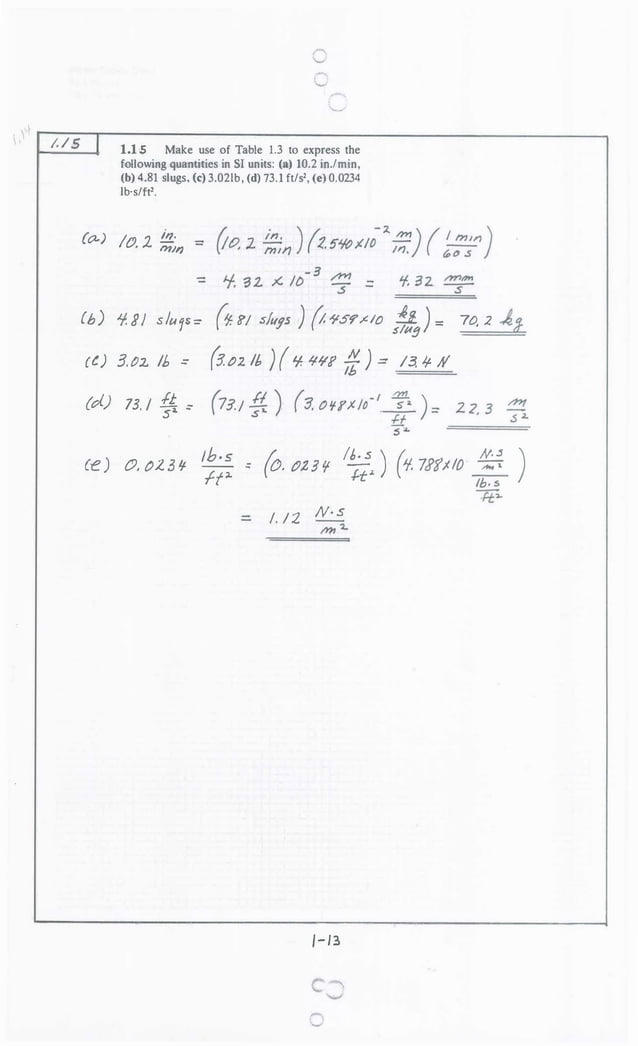 1.14
1.15
1.15 Make use of Table 1.3 to express the
following quantities in SI units: (a) 10.2 in./min,
(b) 4.81 slugs, (c) 3.02lb, (d) 73.1 ft/s², (e) 0.0234
lb·s/ft².
(a) 10.2 in./min = (10.2 in./min) (2.540x10^-2 m/in.) (1 min/60 s)
= 4.32 x 10^-3 m/s = 4.32 mm/s
(b) 4.81 slugs = (4.81 slugs) (1.459x10 kg/slug) = 70.2 kg
(c) 3.02 lb = (3.02 lb) (4.448 N/lb) = 13.4 N
(d) 73.1 ft/s² = (73.1 ft/s²) (3.048x10^-1 m/s² / ft/s²) = 22.3 m/s²
(e) 0.0234 lb·s/ft² = (0.0234 lb·s/ft²) (4.788x10 N·s/m² / lb·s/ft²)
= 1.12 N·s/m²
1-13